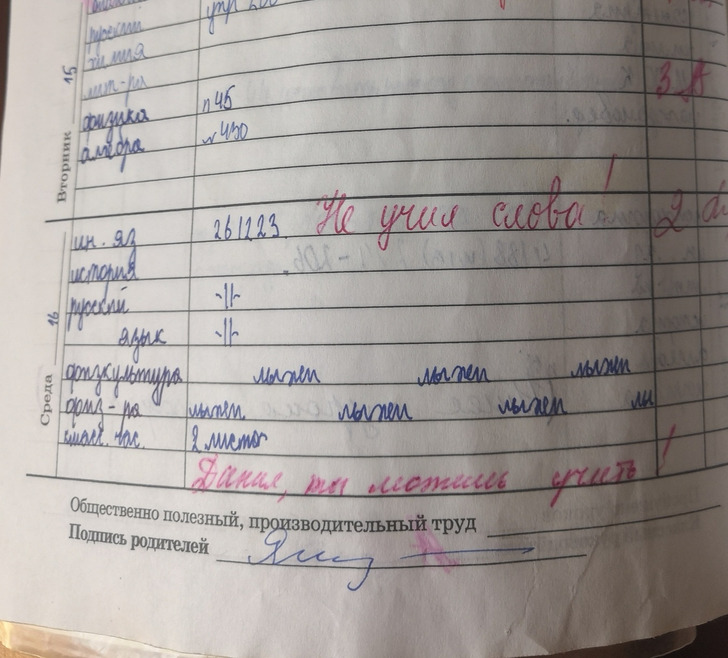 русский упр
химия
лит-ра 3
физика п 45
алгебра № 450
Вторник 15
ин. яз 261223 Не учил слова! 2
история
русский -||-
язык -||-
физкультура лыжи лыжи лыжи
физ-ра лыжи лыжи лыжи лы
класс. час. 2 листа
Данил, ты можешь учить!
Среда 16
Общественно полезный, производительный труд
Подпись родителей